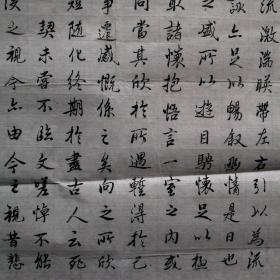 流激湍暎带左右引以為流
詠亦足以暢叙幽情是日也
之盛所以遊目騁懷足以極
取諸懷抱悟言一室之内或
同當其欣於所遇輙得於己
事遷感慨係之矣向之所欣
短随化終期於盡古人云死
契未嘗不臨文嗟悼不能
後之視今亦由今之視昔悲